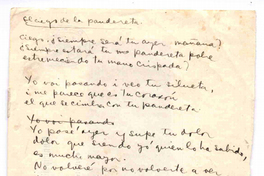 El ciego de la pandereta.
Ciego, ¿siempre será tu ayer mañana?
¿Siempre estará tu pandereta pobre
estremeciendo tu mano crispada?
Yo voi pasando i veo tu silueta
i me parece que es tu corazón
el que se cimbra con tu pandereta.
Yo voi pasando
Yo pasé ayer y supe tu dolor
dolor que siendo yo quien lo ha sabido,
es mucho mayor.
No volveré por no volverte a ver